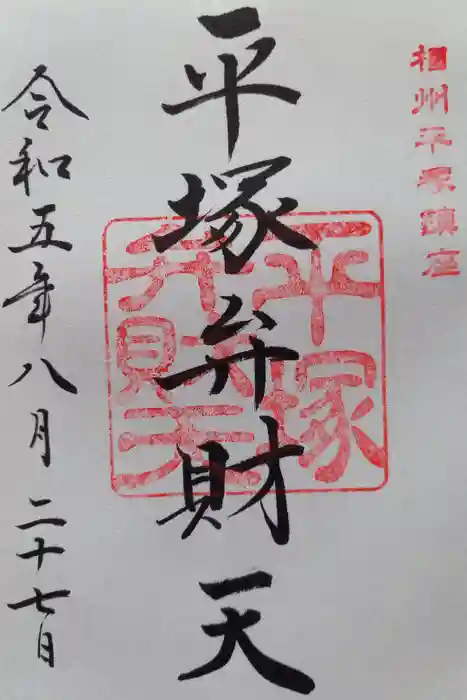 相州平塚鎮座
平塚弁財天
平塚
弁財天
令和五年八月二十七日